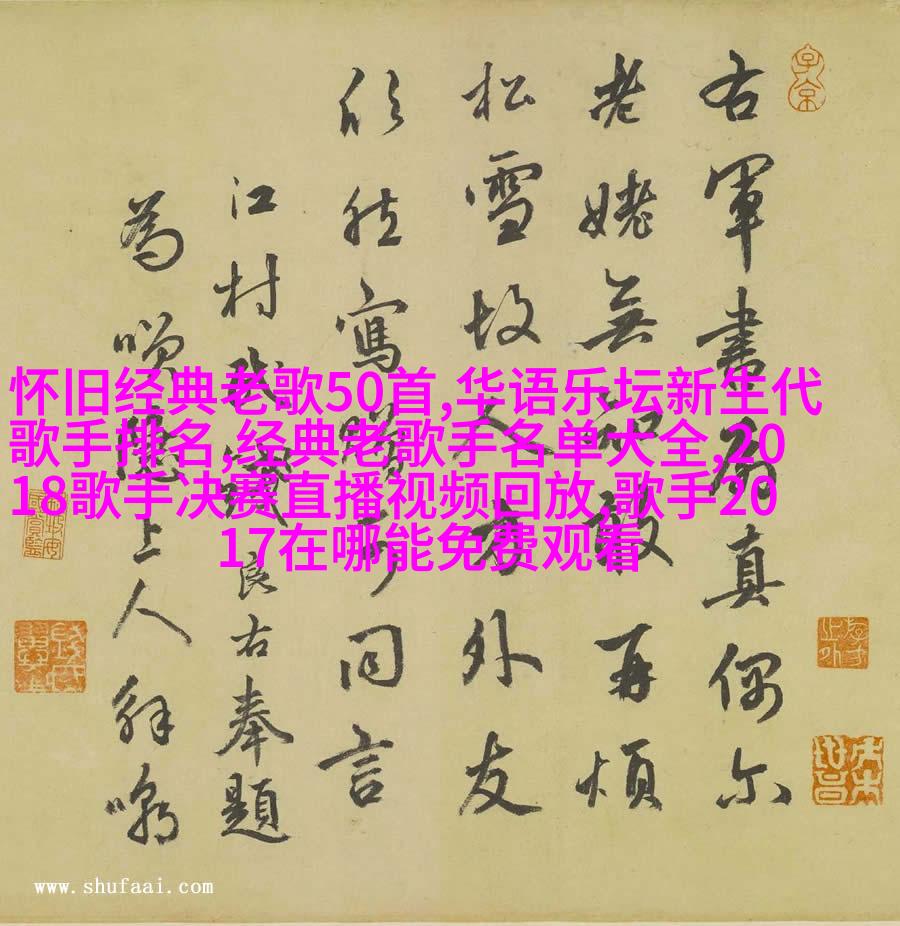 怀旧经典老歌50首,华语乐坛新生代
歌手排名,经典老歌手名单大全,20
18歌手决赛直播视频回放,歌手20
17在哪能免费观看
右軍書扇真偶尔
老姥無知敢再煩
松雪故人方外友
欣然寫同言
江村良右奉題
為上人解嘲
www.shufaai.com